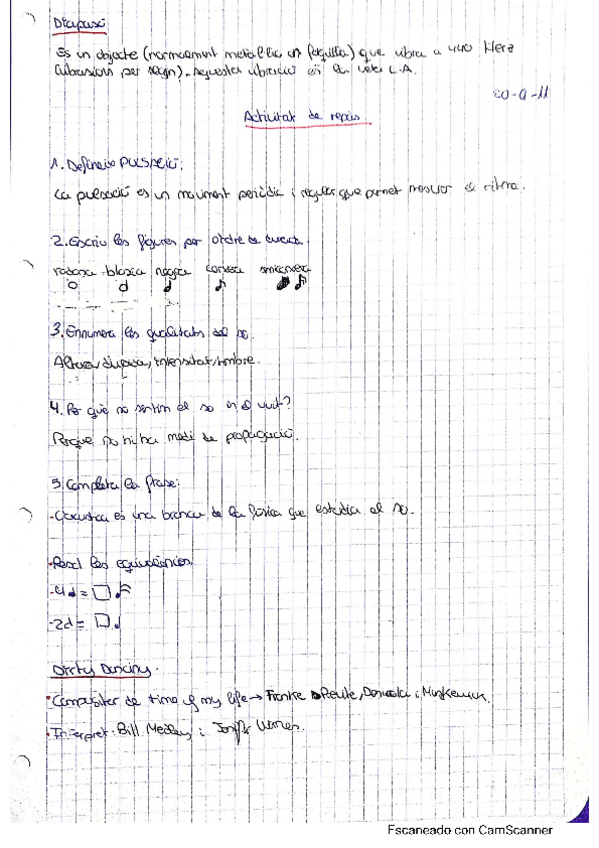 Diapasó
És un objecte (normalment metàl·lic en forquilla) que vibra a 440 Herz
(vibracions per segon). Aquesta vibració és la nota LA.
20-9-11
Activitat de repàs.
1. Defineix PULSACIÓ:
La pulsació és un moviment periòdic i regular que permet mesurar el ritme.
2. Escriu les figures per ordre de durada.
rodona blanca negra corxera semicorxera
3. Ennumera les qualitats del so.
Altura, durada, intensitat, timbre.
4. Per què no sentim el so en el vuit?
Perque no hi ha medi de propagació.
5. Completa la frase:
-Acustica és una branca de la física que estudia el so.
-Resol les equivalències.
-4 =
-2 =
Dirty Dancing.
·Compositer de time of my life → Franke Previte, Denicola i Markowitz.
·Interpret: Bill Medley i Jennifer Warnes.
Escaneado con CamScanner